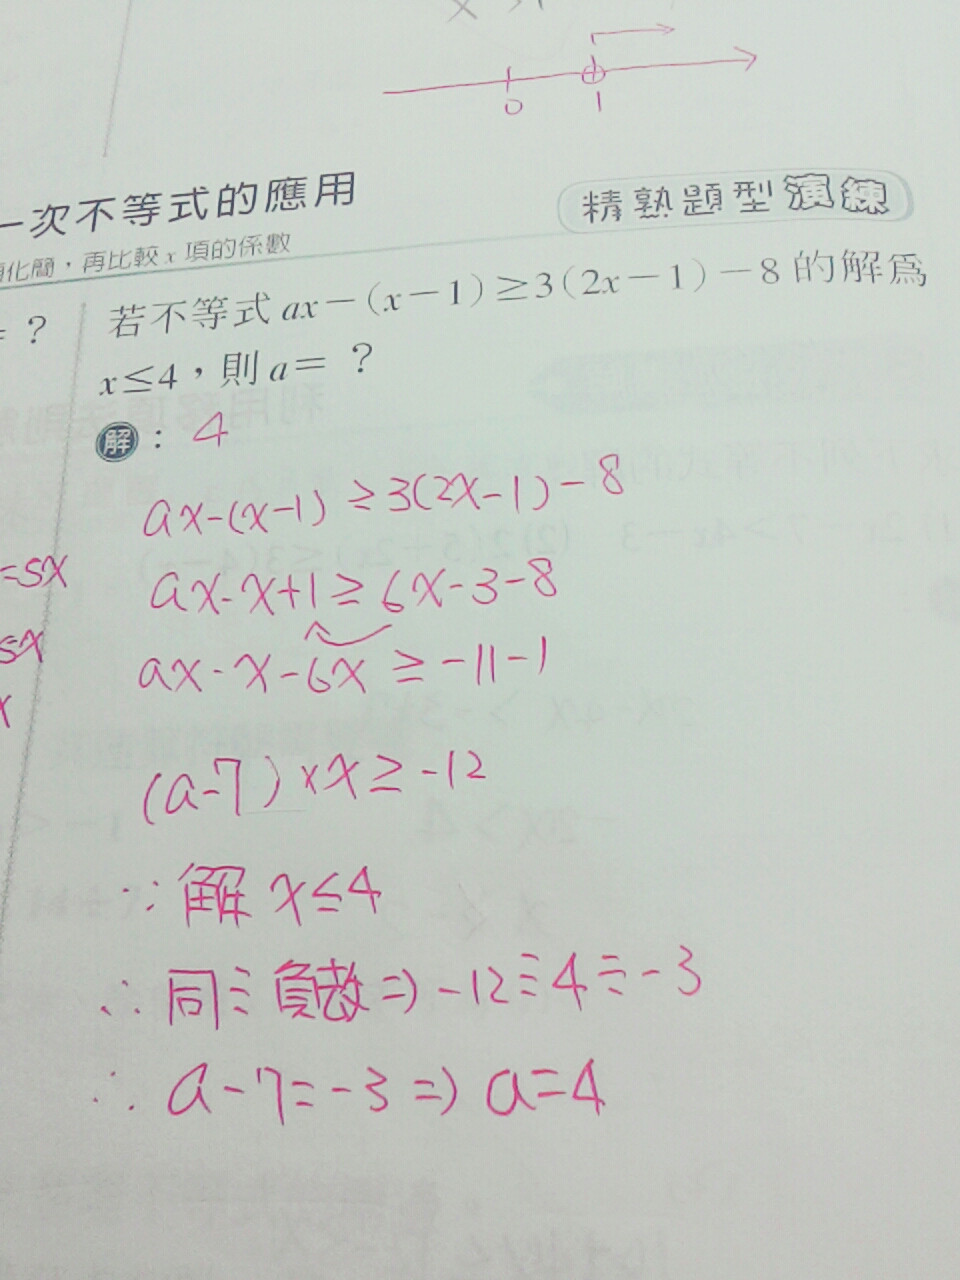 0 1
一次不等式的應用
精熟題型演練
化簡，再比較x項的係數
= ？
若不等式ax－(x－1)≥3(2x－1)－8的解為
x≤4，則a＝？
解：4
ax-(x-1) ≥ 3(2x-1)-8
ax-x+1 ≥ 6x-3-8
=5x
ax-x-6x ≥ -11-1
5x
x
(a-7)×x ≥ -12
∵解 x≤4
∴同÷負數 => -12÷4=-3
∴ a-7=-3 => a=4